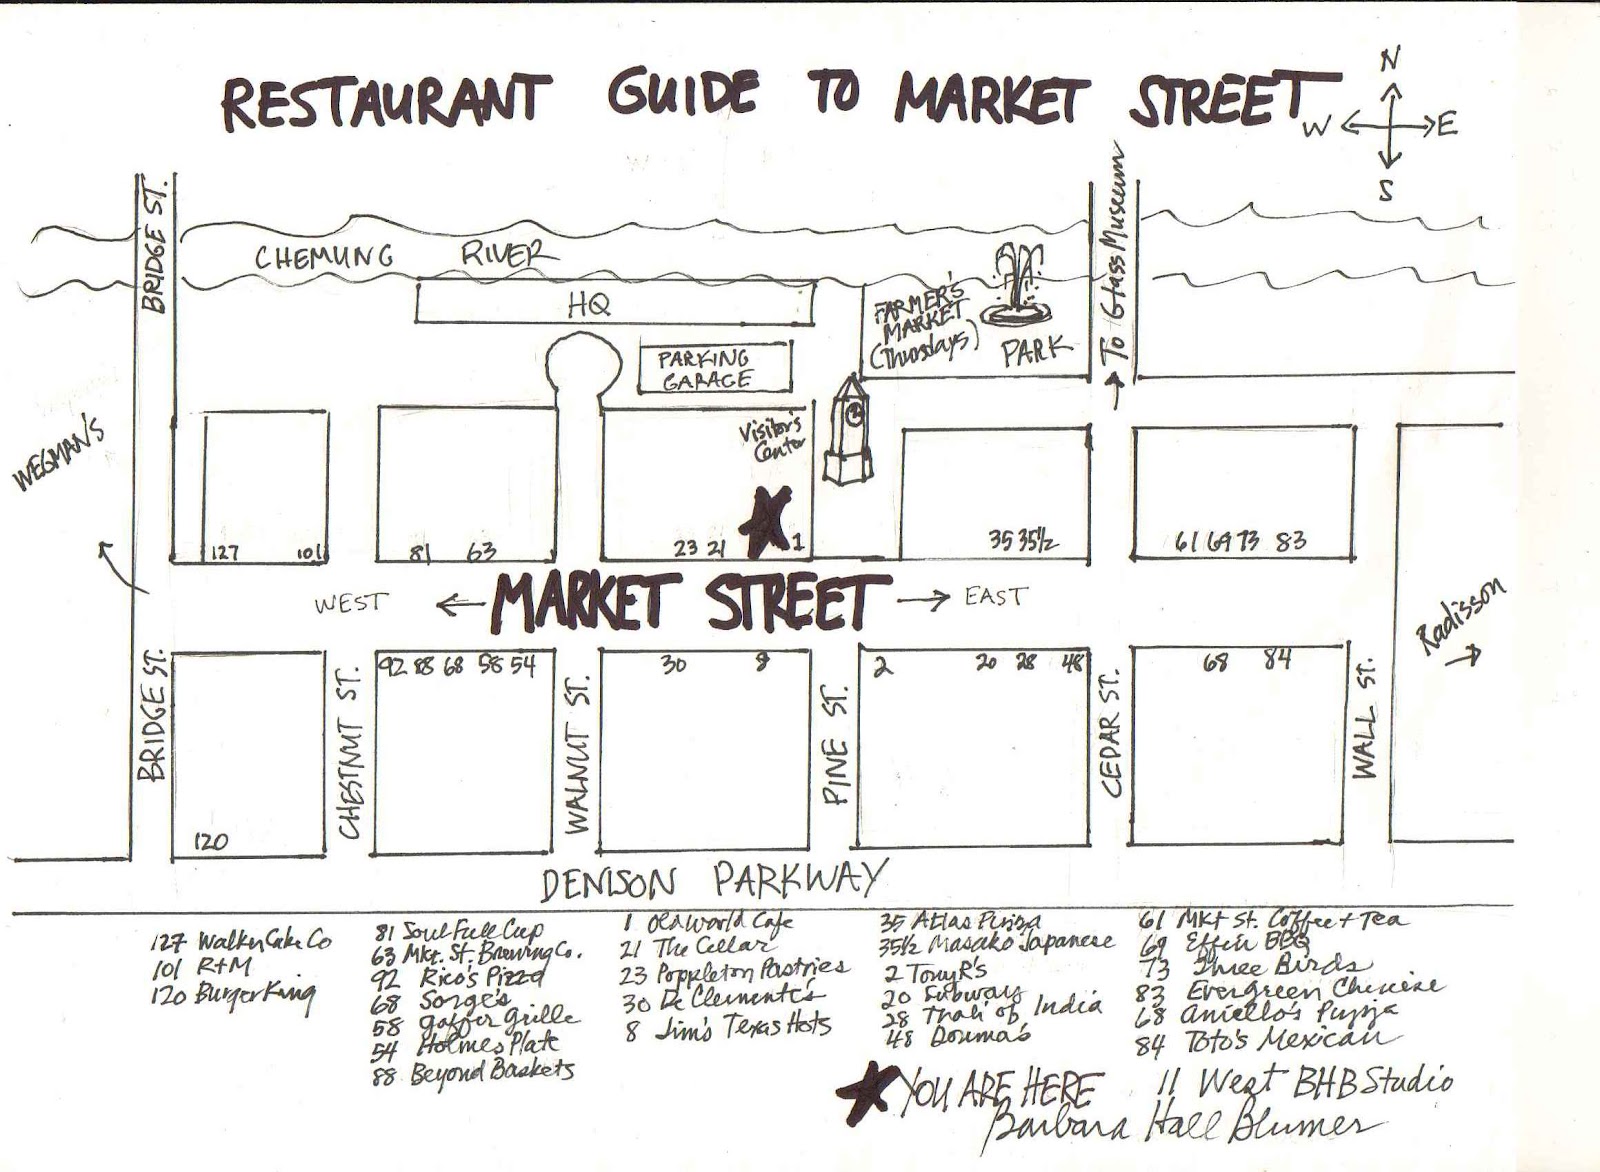 RESTAURANT GUIDE TO MARKET STREET
N
W E
S
BRIDGE ST.
CHEMUNG RIVER
To Glass Museum
HQ
FARMER'S
MARKET
(Thursdays)
PARK
PARKING
GARAGE
WEGMAN'S
Visitor's
Center
127 101 81 63 23 21 1 35 35½ 61 69 73 83
WEST MARKET STREET EAST
Radisson
92 88 68 58 54 30 8 2 20 28 48 68 84
BRIDGE ST.
CHESTNUT ST.
WALNUT ST.
PINE ST.
CEDAR ST.
WALL ST.
120
DENISON PARKWAY
127 Walker Cake Co
101 R+M
120 Burger King
81 Soul Full Cup
63 Mkt. St. Brewing Co.
92 Rico's Pizza
68 Sorge's
58 Gaffer Grille
54 Holmes Plate
88 Beyond Baskets
1 Old World Cafe
21 The Cellar
23 Poppleton Pastries
30 DeClemente's
8 Jim's Texas Hots
35 Atlas Pizza
35½ Masako Japanese
2 Tony R's
20 Subway
28 Thali of India
48 Donna's
61 Mkt St. Coffee + Tea
69 Effin BBQ
73 Three Birds
83 Evergreen Chinese
68 Aniello's Pizza
84 Toto's Mexican
YOU ARE HERE
11 West BHB Studio
Barbara Hall Blumer